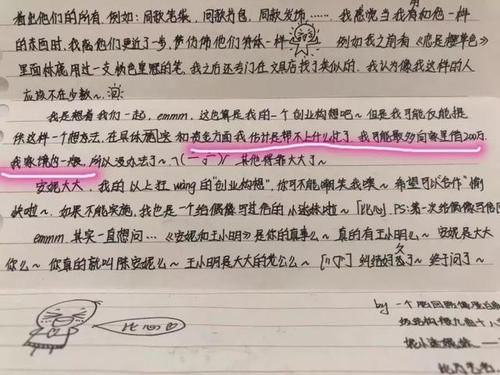 着出他们的所有，例如：同款笔袋，同款书包，同款发饰……，我感觉当我有和他一样
的东西时，我离他们更近了一步，梦仿佛他们身体一样 例如我之前看《恋是樱草色》
里面林鹿用过一支粉色皇冠的笔，我之后还专门在文具店找了类似的，我认为像我这样的人
应该不在少数～
我是想着我们一起，emmm，这也算是我的一个创业构想吧～但是我可能仅能提
供这样一个想方法，在具体落实和资金方面我估计是帮不上什么忙了，我可能最多向家里借200万，
我家情况一般，所以没办法了～ 其他得靠大大了～
安妮大大，我的以上狂wang的“创业构想”，你可不能嘲笑我噢～ 希望可以合作愉
快啦～ 如果不能实施，我也是一个给偶像写过信的小迷妹啦～ [比心] PS：第一次给偶像写信
emmm 其实一直想问…《安妮和王小明》是你的真事么～ 真的有王小明么～ 安妮是大大
你么～ 你真的就叫陈安妮么～ 王小明是大大的老公么～ 纠结好久了～ 终于问了～
比心
by 一个